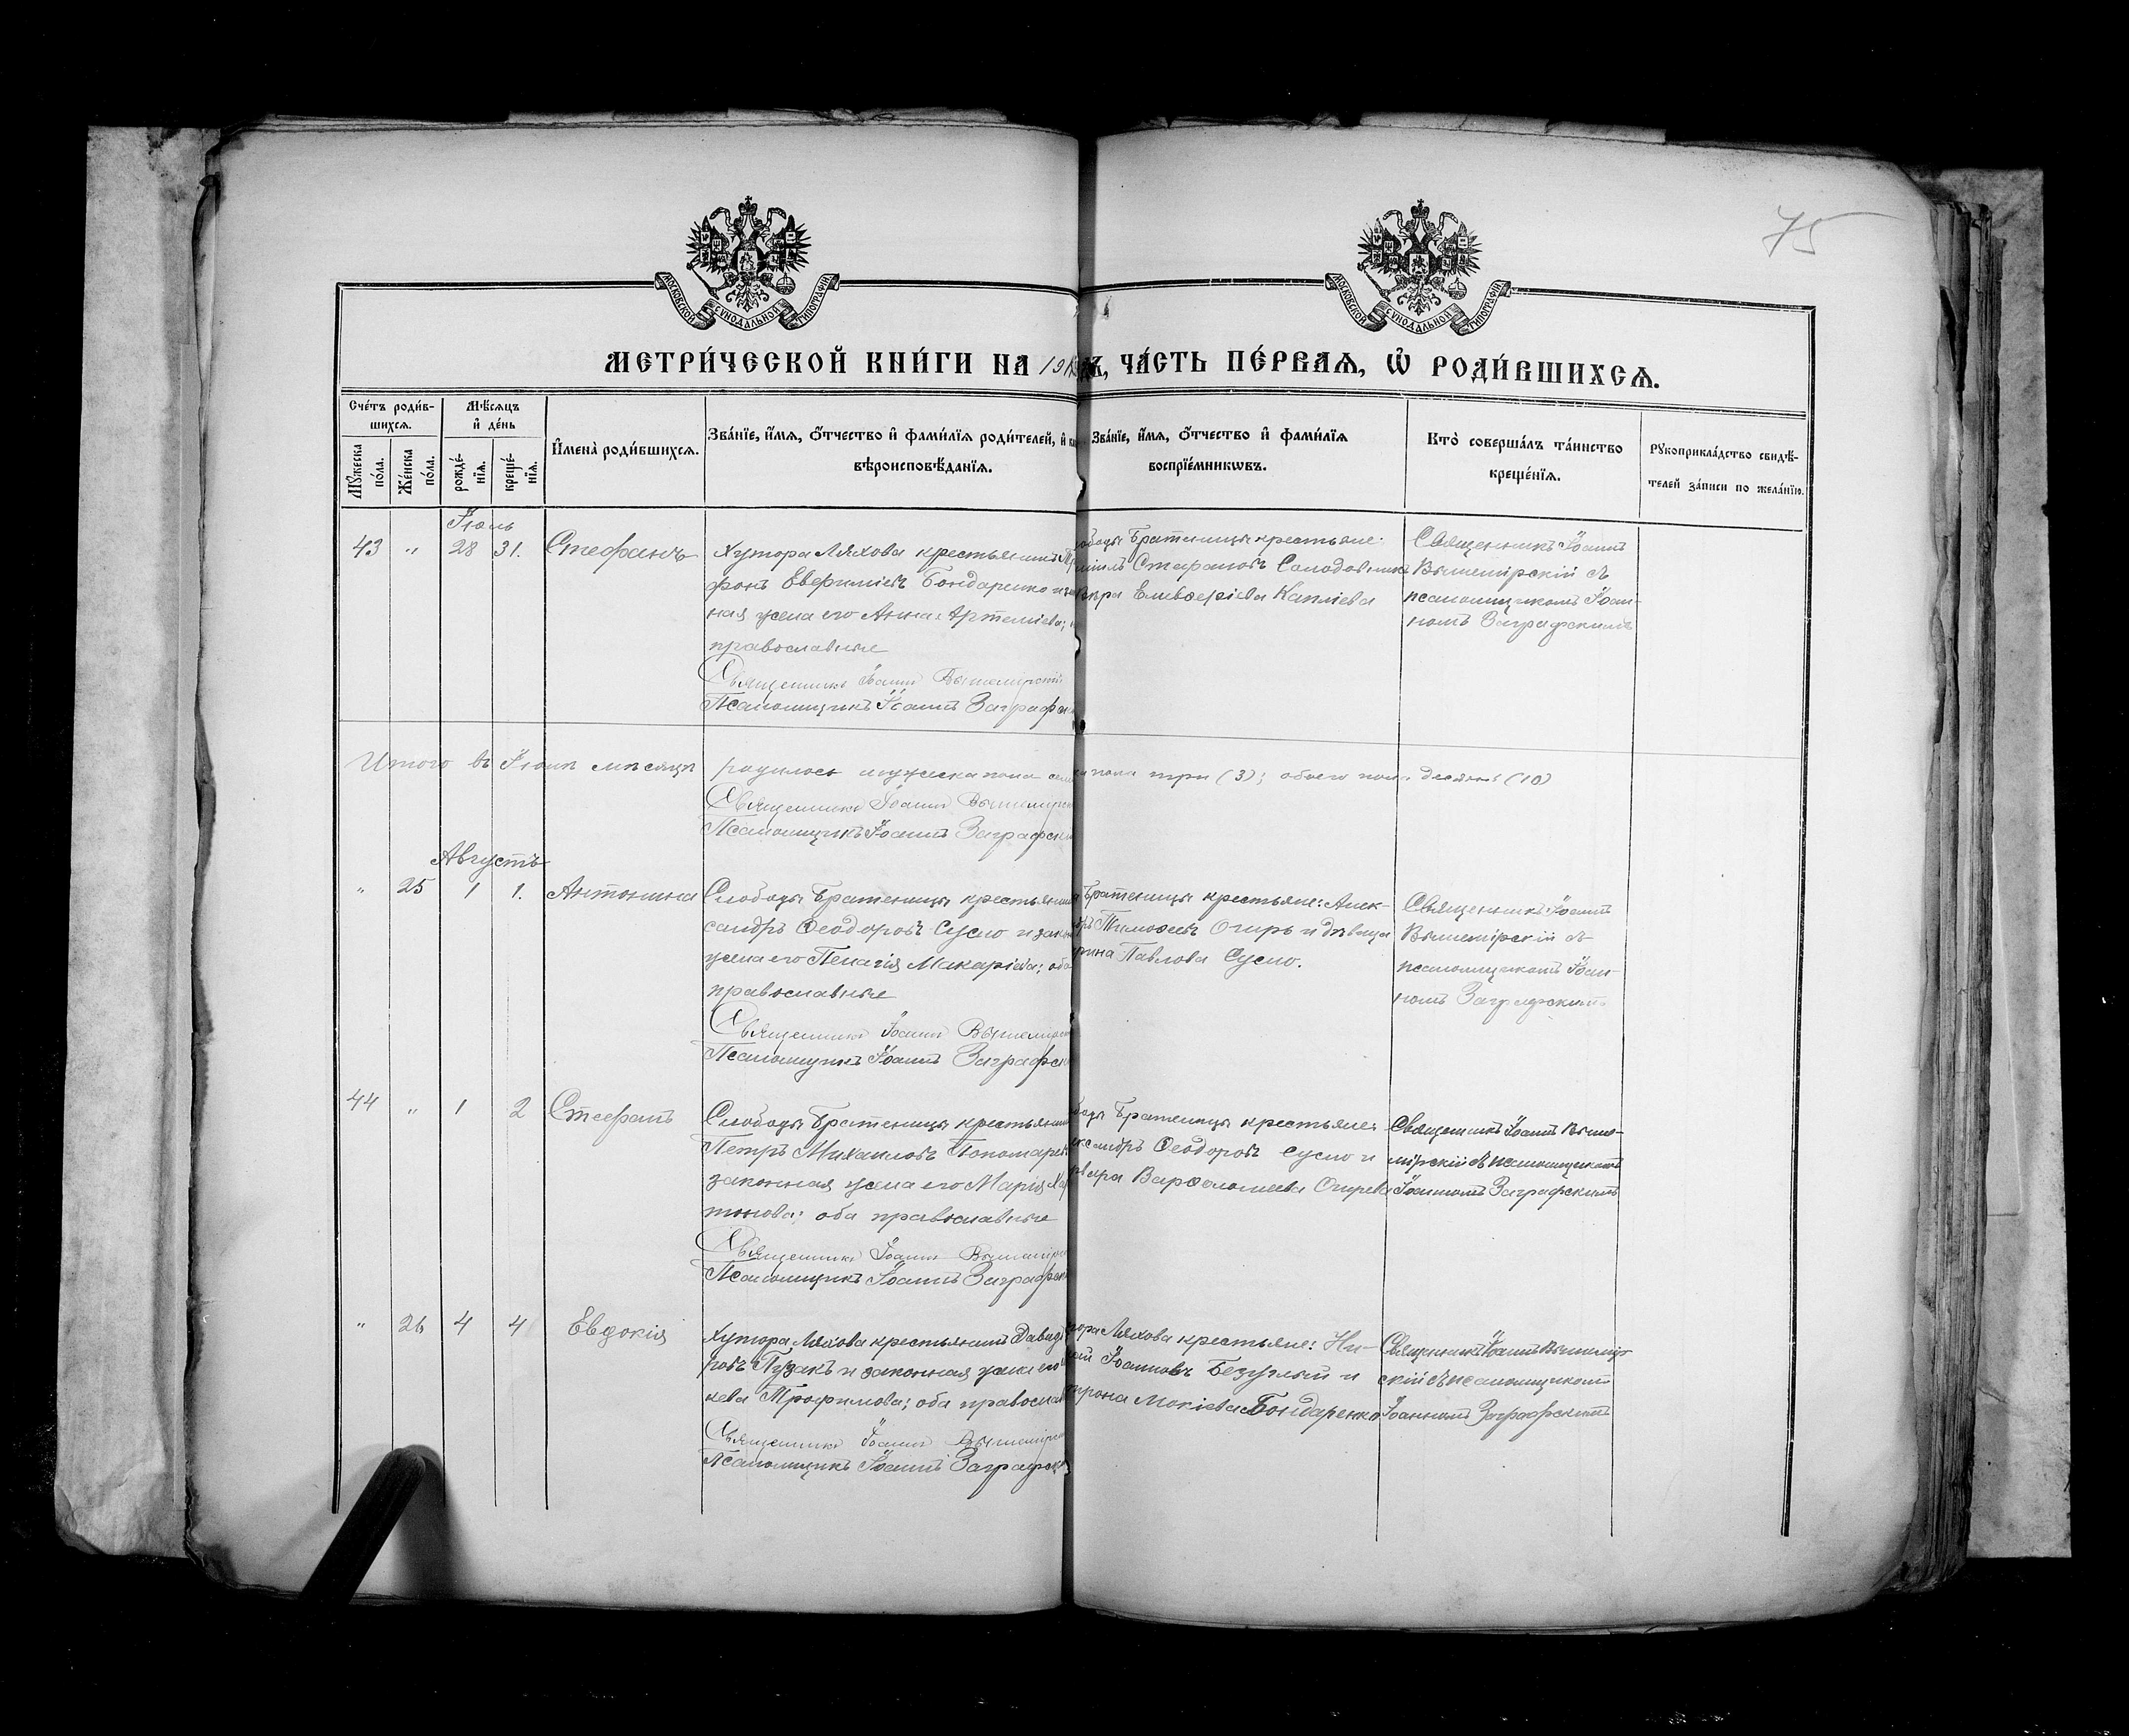 75
МОСКОВСКОЙ СѴНОДАЛЬНОЙ ТИПОГРАФІИ
МОСКОВСКОЙ СѴНОДАЛЬНОЙ ТИПОГРАФІИ
МЕТРИ́ЧЕСКОЙ КНИ́ГИ НА 191 ЧА́СТЬ ПЕ́РВАѦ, Ѡ҆ РОДИ́ВШИХСѦ.
Сче́тъ роди́в-
шихсѧ.
Мѣ́сѧцъ
и҆ де́нь
Мꙋ́жеска
по́ла.
Же́нска
по́ла.
рожде́-
нїѧ.
креще́-
нїѧ.
И҆мена̀ роди́вшихсѧ.
Зва́нїе, и҆́мѧ, о҆́тчество и҆ фами́лїѧ роди́телей, и҆
вѣроисповѣ́данїѧ.
Зва́нїе, и҆́мѧ, о҆́тчество и҆ фами́лїѧ
воспрїе́мникѡвъ.
Кто̀ соверша́лъ та́инство
креще́нїѧ.
Рꙋкоприкла́дство свидѣ́-
телей за́писи по жела́нїю.
Іюль
43 " 28 31. Стефанъ
Хутора Ляхова крестьянинъ
фонъ Евфиміевъ Бондаренко и
ная жена его Анна Артеміева;
православные
Священникъ Іоаннъ Вышемірскій
Псаломщикъ Іоаннъ Заграфск
Братеницы крестьяне:
Стефановъ Солодовник
Елевферіева Каплева
Священникъ Іоаннъ
Вышемірскій съ
псаломщикомъ Іоан-
номъ Заграфскимъ
Итого въ Іюлѣ мѣсяцѣ родилось мужеска пола пола три (3); обоего пола десять (10)
Священникъ Іоаннъ Вышемірск
Псаломщикъ Іоаннъ Заграфск
Августъ
" 25 1 1. Антонина
Слободы Братеницы крестьянин
сандръ Ѳеодоровъ Сусло и закон
жена его Пелагія Макаріева; оба
православные
Священникъ Іоаннъ Вышемірск
Псаломщикъ Іоаннъ Заграфск
Братеницы крестьяне: Алек-
Тимоѳеевъ Огирь и дѣвица
рина Павлова Сусло.
Священникъ Іоаннъ
Вышемірскій съ
псаломщикомъ Іоан-
номъ Заграфскимъ
44 " 1 2 Стефанъ
Слободы Братеницы крестьянин
Петръ Михаиловъ Пономарев
законная жена его Марія Хар
тонова; оба православные
Священникъ Іоаннъ Вышемірск
Псаломщикъ Іоаннъ Заграфск
Братеницы крестьяне:
ксандръ Ѳеодоровъ Сусло и
Варѳоломеева Огирева
Священникъ Іоаннъ Выше-
мірскій съ псаломщикомъ
Іоанномъ Заграфскимъ
" 26 4 4 Евдокія
Хутора Ляхова крестьянинъ Давид
ровъ Пузакъ и законная жена его
кева Трофимова; оба православ
Священникъ Іоаннъ Вышемірск
Псаломщикъ Іоаннъ Заграфск
тора Ляхова крестьяне: Ни-
Іоанновъ Безуглый и
трона Мокіева Бондаренко
Священникъ Іоаннъ Вышемір-
скій съ псаломщикомъ
Іоанномъ Заграфскимъ